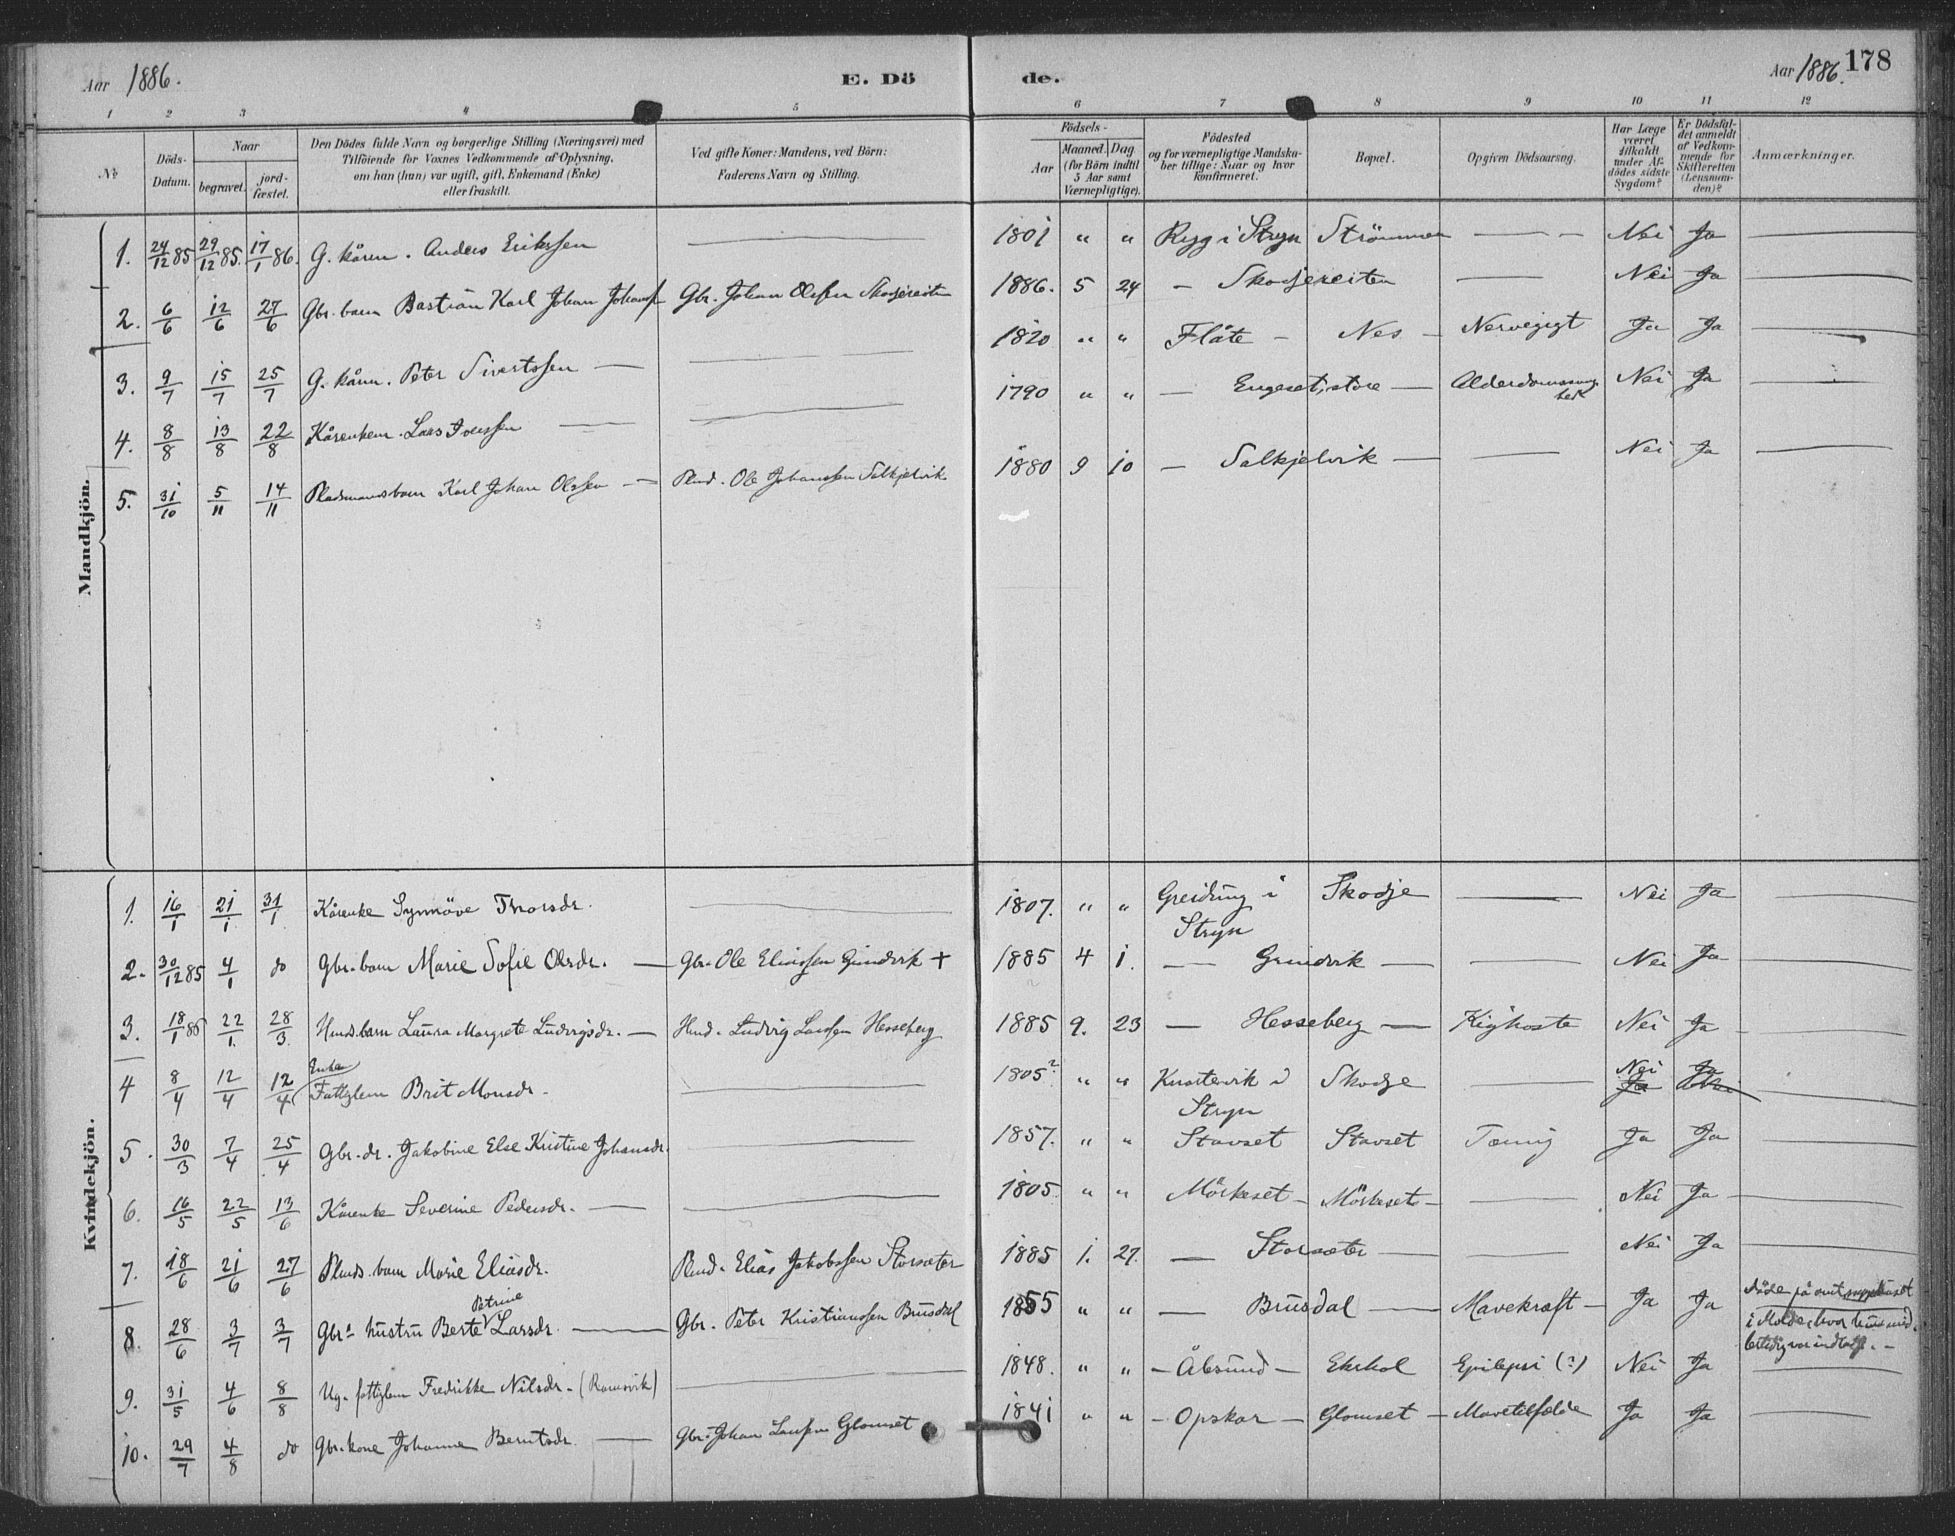 Aar 1886. E. Dö de. Aar 1886. 178
1 2 3 4 5 6 7 8 9 10 11 12
№
Döds-Datum.
Naar
begravet.
jord-fæstet.
Den Dödes fulde Navn og borgerlige Stilling (Næringsvei) med
Tilföiende for Voxnes Vedkommende af Oplysning,
om han (hun) var ugift, gift, Enkemand (Enke)
eller fraskilt.
Ved gifte Koner: Mandens, ved Börn:
Faderens Navn og Stilling.
Födsels-
Aar
Maaned. Dag
(for Börn indtil
5 Aar samt
Værnepligtige).
Födested
og for værnepligtige Mandska-
ber tillige: Naar og hvor
konfirmeret.
Bopæl.
Opgiven Dödsaarsag.
Har Læge
været
tilkaldt
under Af-
dödes sidste
Sygdom?
Er Dödsfal-
det anmeldt
af Vedkom-
mende for
Skifteretten
(Lensman-
den)?
Anmærkninger.
Mandkjön.
1. 24/12 85 29/12 85. 17/1 86. G. kårm. Anders Erikssen — 1801 " " Ryg i Stryn Strömmen — Nei Ja —
2. 6/6 12/6 27/6 Gbr. barn Bastian Karl Johan Johanss Gbr. Johan Olssen Skodjereiten 1886. 5 24 — Skodjereiten — Nei Ja —
3. 9/7 15/7 25/7 G. kårm. Peter Sivertssen — 1820 " " Flåte — Nes — Nervegigt Ja Ja —
4. 8/8 13/8 22/8 Kårenkem. Lars Iverssen — 1790 " " — Engeset, store — Alderdomssvag-
hed Nei Ja —
5. 31/10 5/11 14/11 Pladsmandsbarn Karl Johan Olssen — Plmd. Ole Johanssen Solkjelvik 1880 9 10 — Solkjelvik — Nei Ja —
Kvindekjön.
1. 16/1 21/1 31/1 Kårenke Synnöve Thorsdr. — 1807. " " Greidung i
Stryn Skodje — Nei Ja —
2. 30/12 85 4/1 do Gbr. barn Marie Sofie Olsdr. — Gbr. Ole Eliassen Grindvik + 1885 4 1. — Grindvik — Nei Ja —
3. 18/1 86 22/1. 28/3 Hmds. barn Laura Margrete Ludvigsdr. — Hmd. Ludvig Larssen Hesseberg 1885 9. 23 — Hesseberg — Kighoste Nei Ja —
4 8/4 12/4 12/4 Enke
Fattiglem Brit Monsdr. — 1805? " " i
Stryn Skodje — Nei Ja —
5. 30/3 7/4 25/4 Gbr. dr. Jakobine Else Kristine Johansdr. — 1857. " " Stavset Stavset Tæring Ja Ja —
6. 16/5 22/5 13/6 Kårenke Severine Pedersdr. — 1805. " " Mörkeset — Mörkeset — Nei Ja —
7. 18/6 21/6 27/6 Plmds. barn Marie Eliasdr. Plmd. Elias Jakobssen Storsæter 1885 1. 27. — Storsæter — Nei Ja —
8. 28/6 3/7 3/7 Gbrs hustru Berte Petrine Larsdr. — Gbr. Peter Kristianssen Brusdal 1855 " " — Brusdal — Mavekræft — Ja Ja Döde på amtssygehuset
i Molde, hvor hun mid-
lertidig var indlagt. —
9. 31/5 4/6 8/8 Ug. fattiglem Fredrikke Nilsdr. (Ramsvik) — 1848. " " — Ålesund — Ekrhol Epilepsi (?) Nei Ja —
10. 29/7 4/8 do Gbr. kone Johanne Berntsdr. — Gbr. Johan Larssen Glomset 1841 " " — Opskar — Glomset — Mavetilfælde Ja Ja —